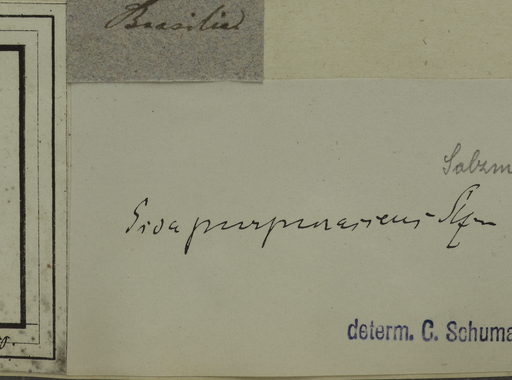 Brasilia
Salzm
Sida purpurascens Slzm
determ. C. Schuma